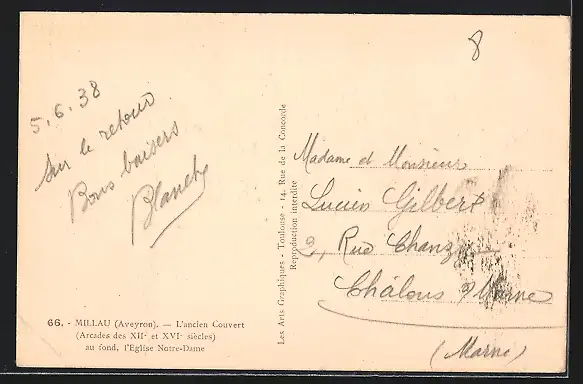 8
5.6.38
Sur le retour
Bons baisers
Les Arts Graphiques - Toulouse - 14, Rue de la Concorde
Reproduction interdite
Madame et Monsieur
Lucien Gilbert
Rue Chanzy
Châlons s/ Marne
(Marne)
66. - MILLAU (Aveyron). — L'ancien Couvert
(Arcades des XIIe et XVIe siècles)
au fond, l'Eglise Notre-Dame